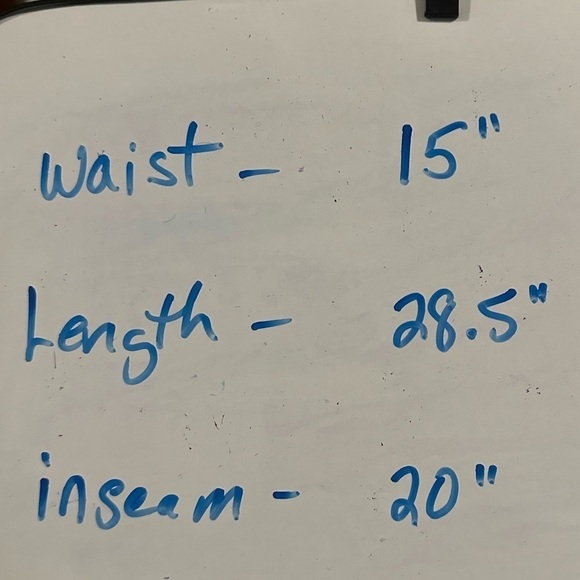 Waist - 15"
Length - 28.5"
inseam - 20"